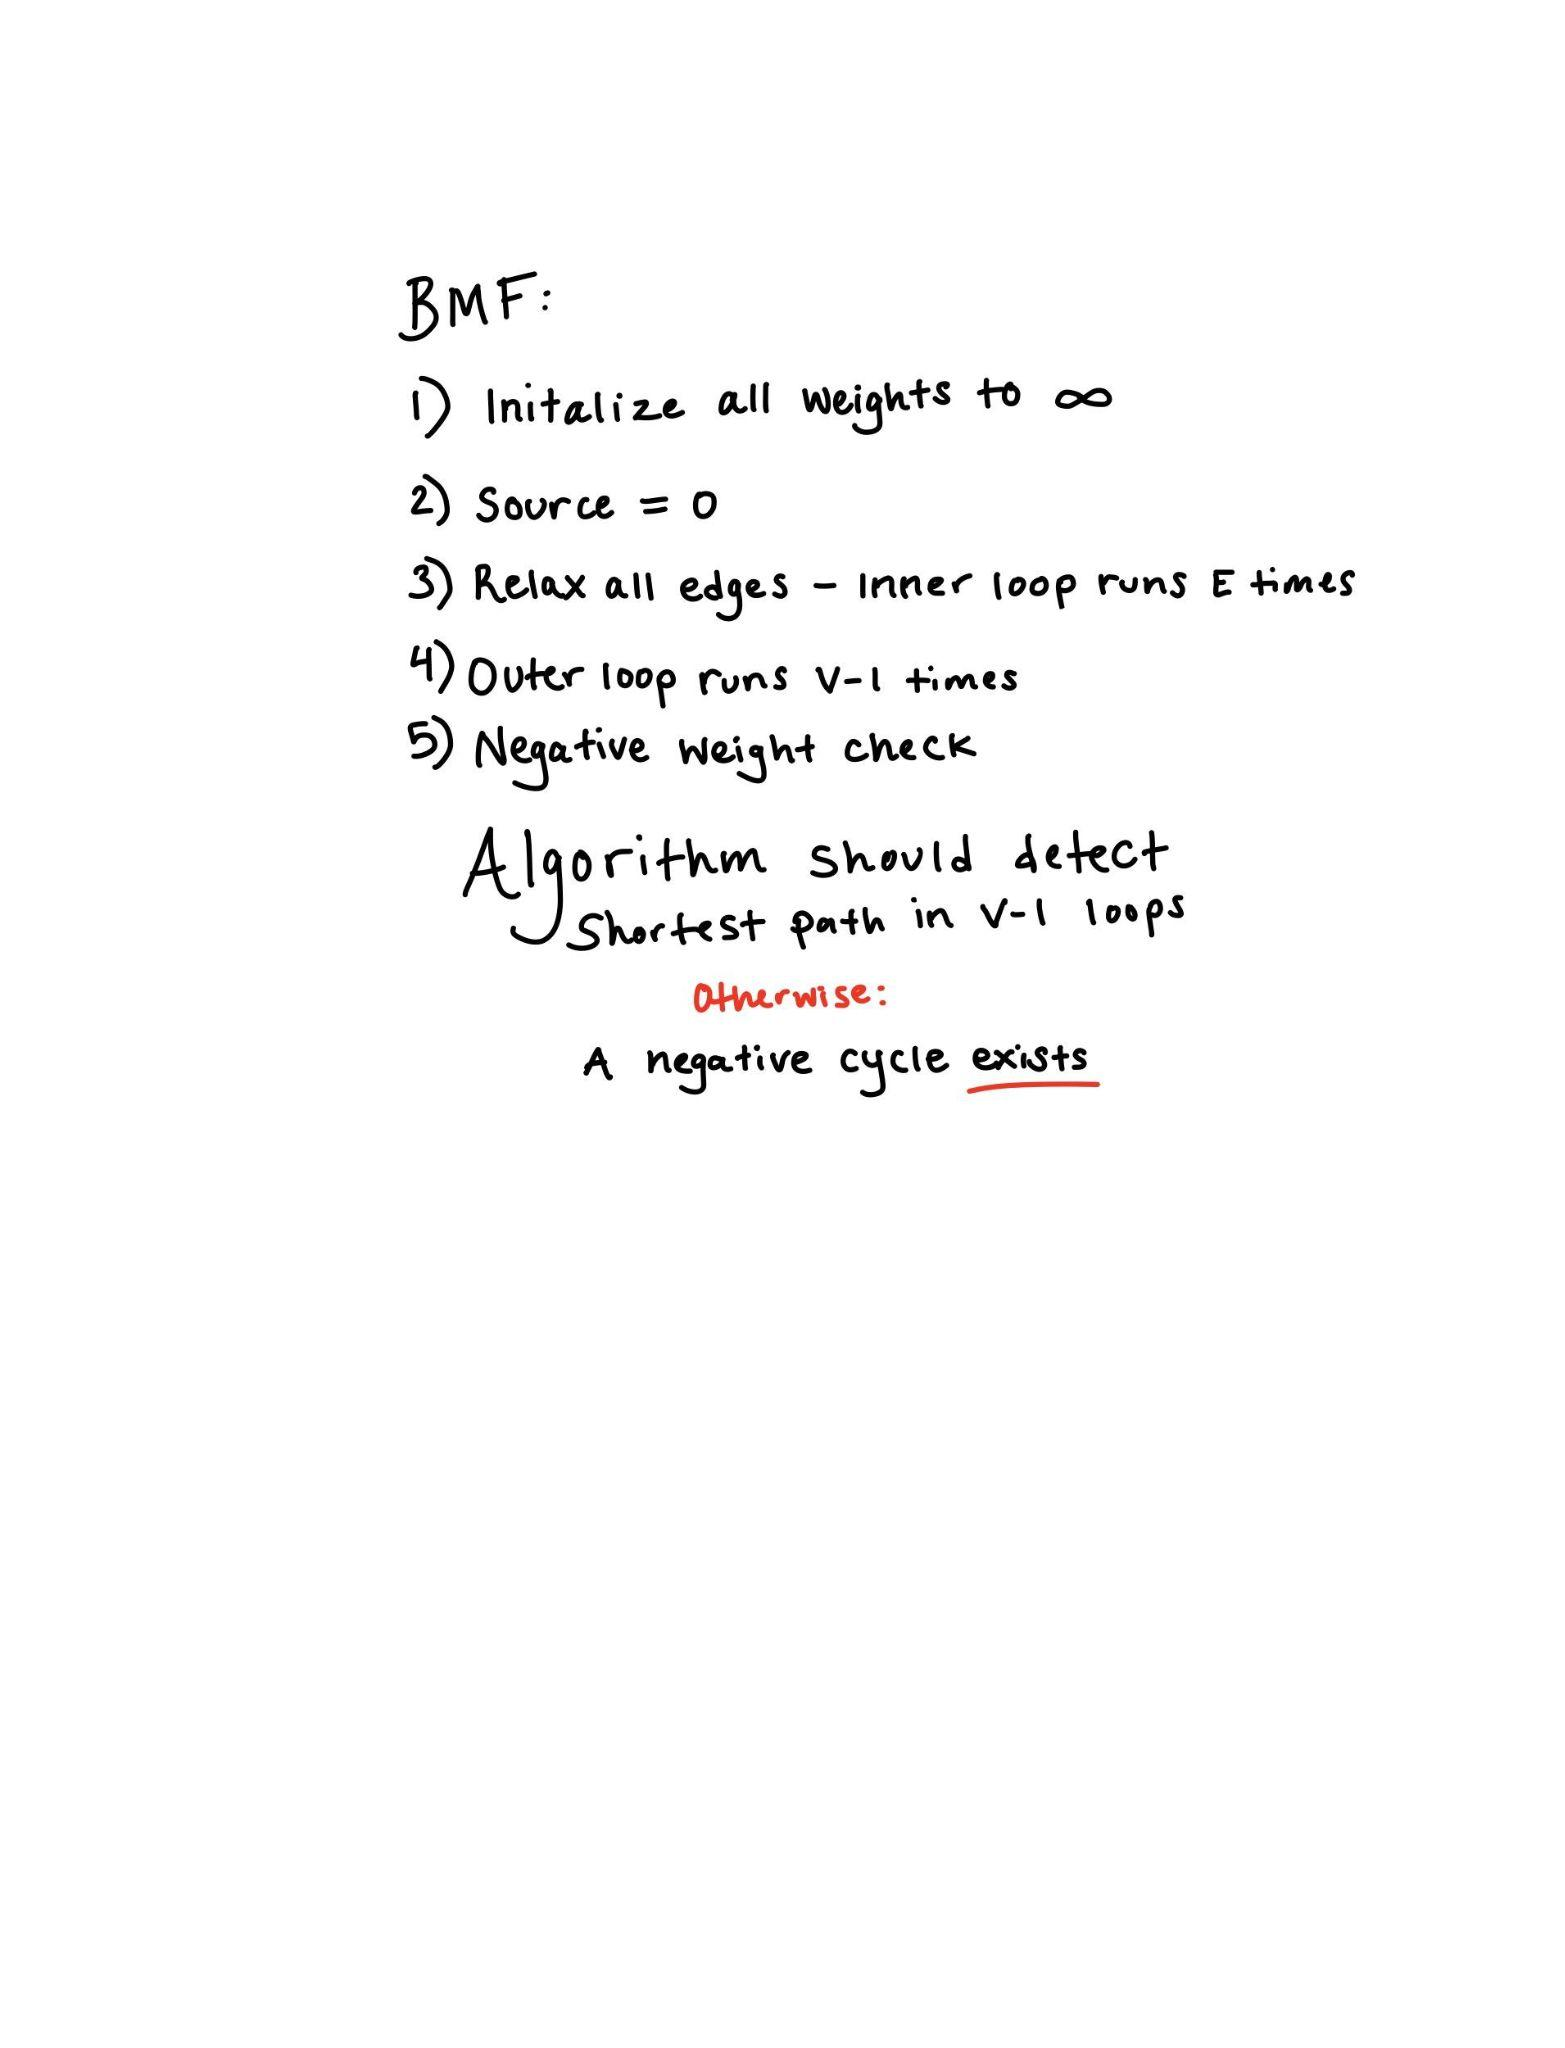 BMF:
1) Initalize all weights to ∞
2) Source = 0
3) Relax all edges - Inner loop runs E times
4) Outer loop runs V-1 times
5) Negative weight check
Algorithm should detect
Shortest path in V-1 loops
Otherwise:
A negative cycle exists